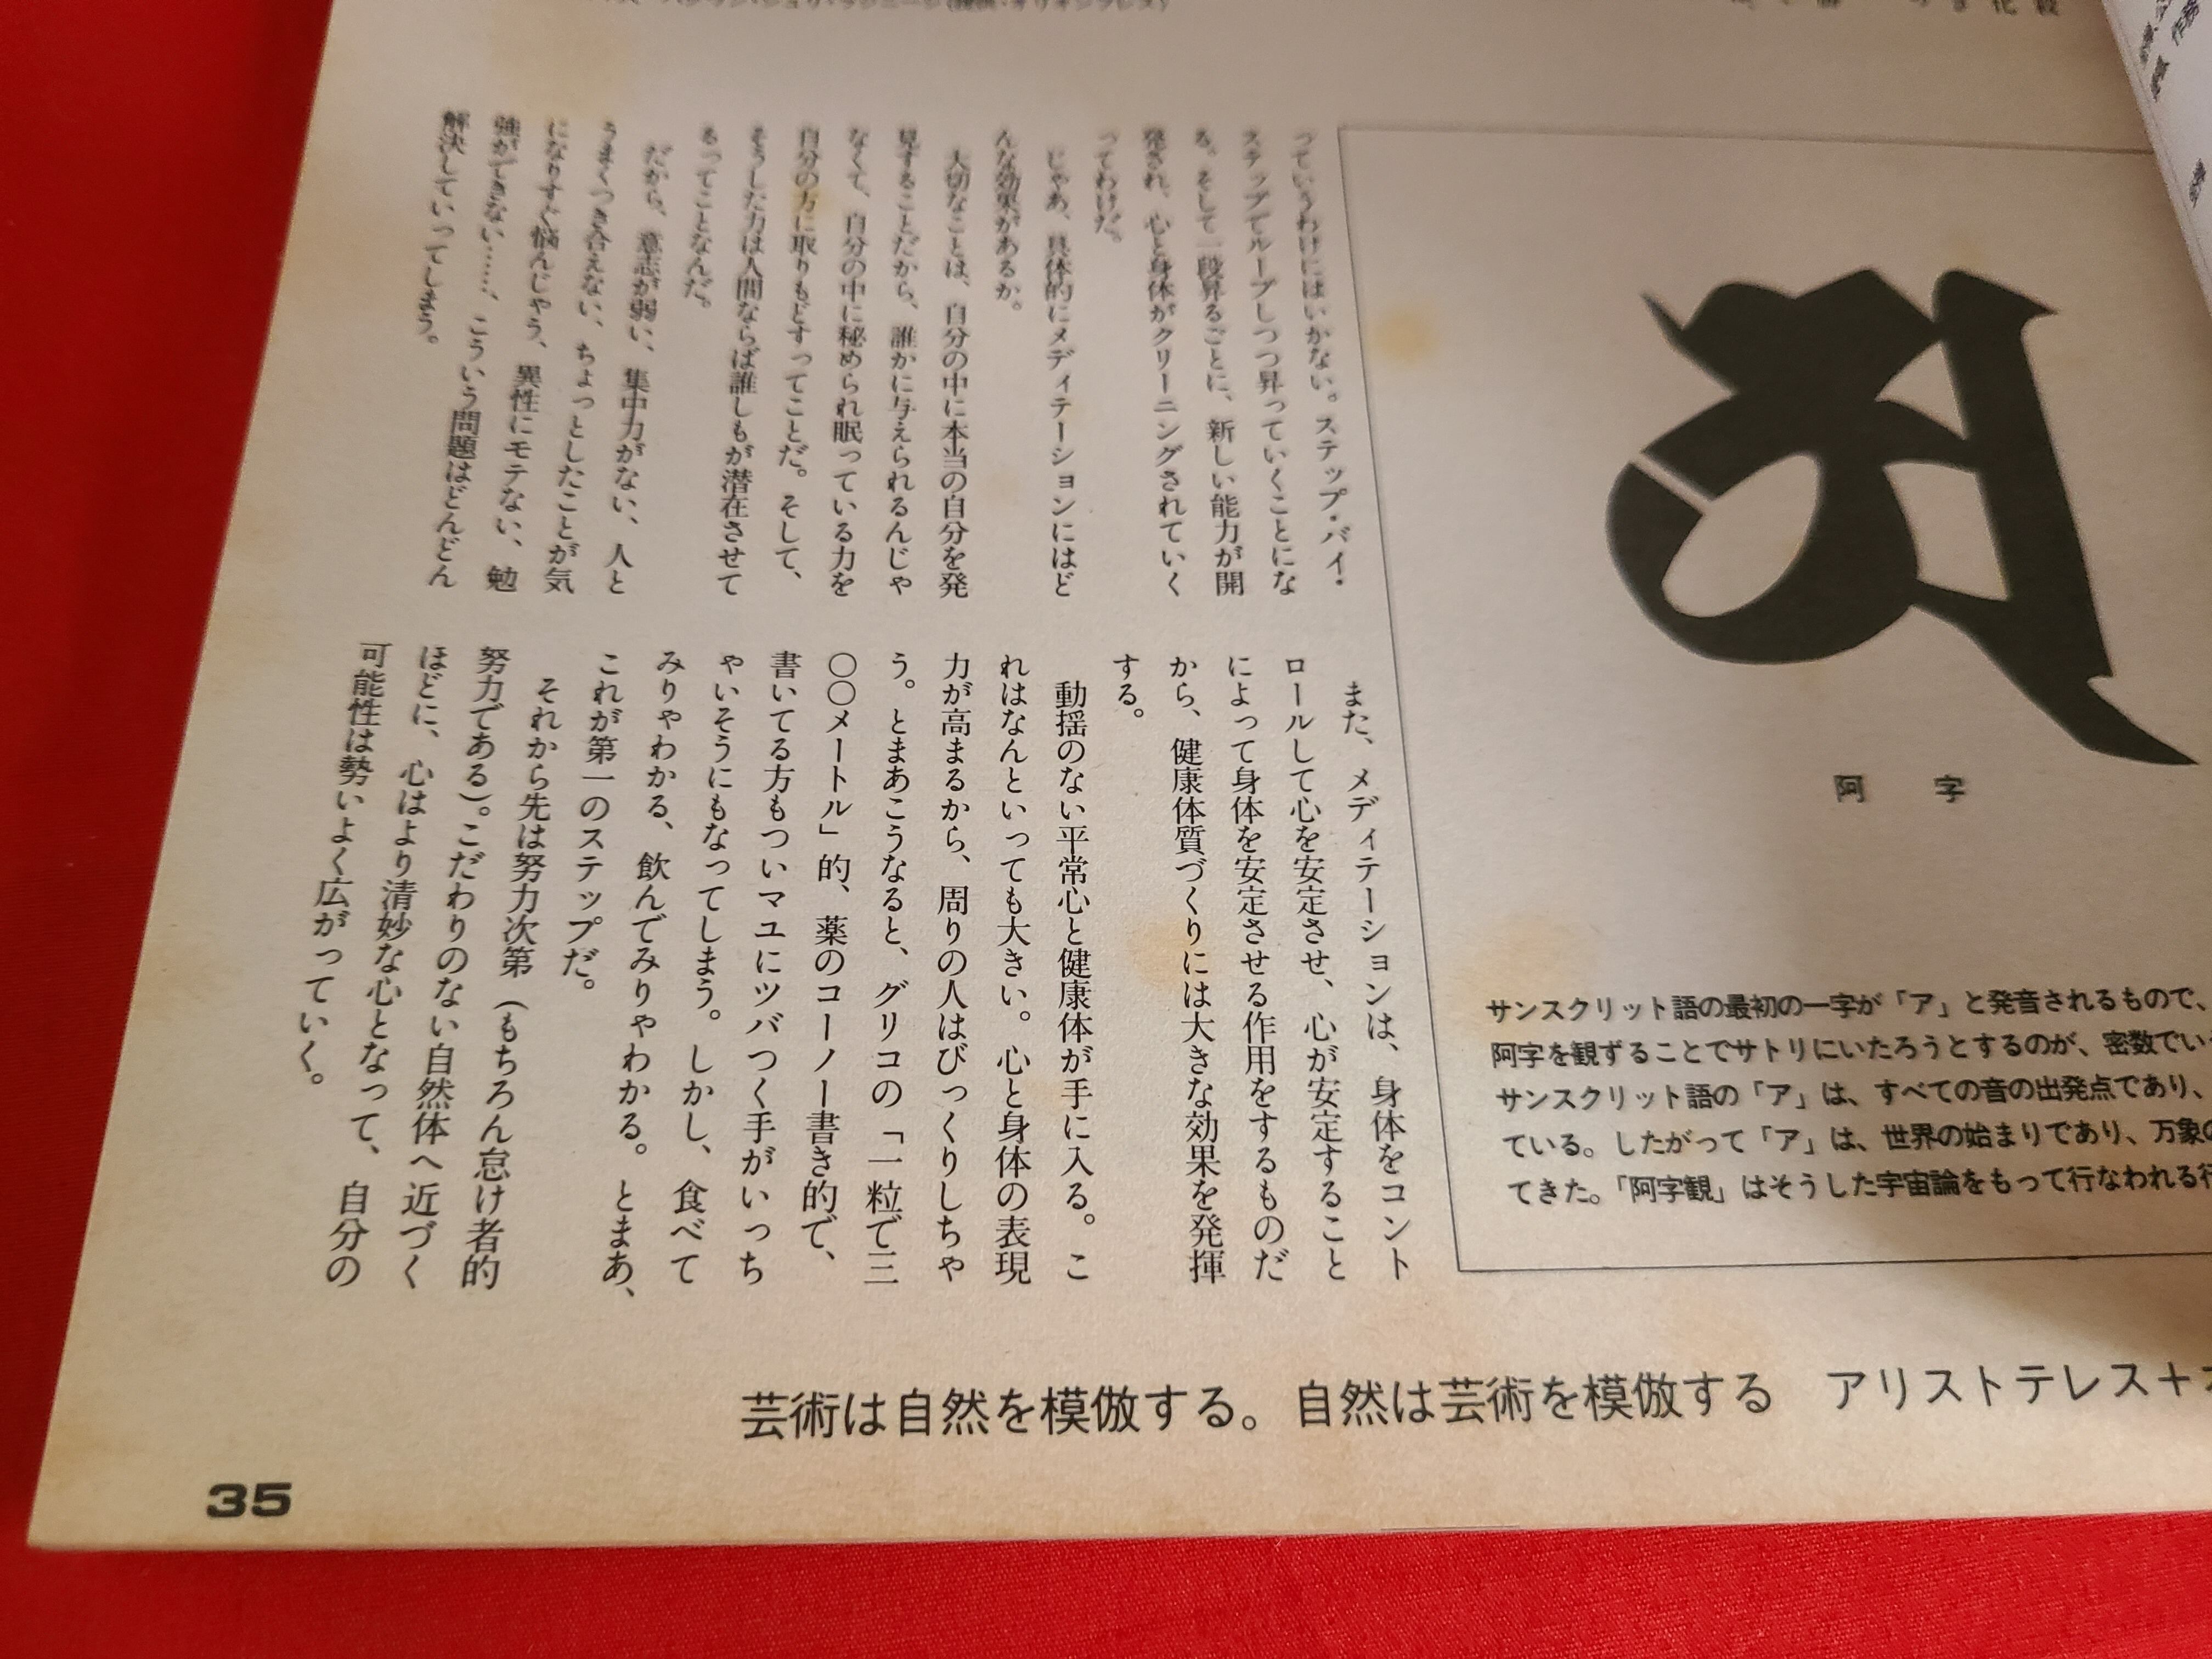 っていうわけにはいかない。ステップ・バイ・
ステップでループしつつ昇っていくことにな
る。そして一段昇るごとに、新しい能力が開
発され、心と身体がクリーニングされていく
ってわけだ。
じゃあ、具体的にメディテーションにはど
んな効果があるか。
大切なことは、自分の中に本当の自分を発
見することだから、誰かに与えられるんじゃ
なくて、自分の中に秘められ眠っている力を
自分の方に取りもどすってことだ。そして、
そうした力は人間ならば誰しもが潜在させて
るってことなんだ。
だから、意志が弱い、集中力がない、人と
うまくつき合えない、ちょっとしたことが気
になりすぐ悩んじゃう、異性にモテない、勉
強ができない……、こういう問題はどんどん
解決していってしまう。
また、メディテーションは、身体をコント
ロールして心を安定させ、心が安定すること
によって身体を安定させる作用をするものだ
から、健康体質づくりには大きな効果を発揮
する。
動揺のない平常心と健康体が手に入る。こ
れはなんといっても大きい。心と身体の表現
力が高まるから、周りの人はびっくりしちゃ
う。とまあこうなると、グリコの「一粒で三
〇〇メートル」的、薬のコーノー書き的で、
書いてる方もついマユにツバつく手がいっち
ゃいそうにもなってしまう。しかし、食べて
みりゃわかる、飲んでみりゃわかる。とまあ、
これが第一のステップだ。
それから先は努力次第（もちろん怠け者的
努力である）。こだわりのない自然体へ近づく
ほどに、心はより清妙な心となって、自分の
可能性は勢いよく広がっていく。
阿字
サンスクリット語の最初の一字が「ア」と発音されるもので、
阿字を観ずることでサトリにいたろうとするのが、密数でい
サンスクリット語の「ア」は、すべての音の出発点であり、
ている。したがって「ア」は、世界の始まりであり、万象の
てきた。「阿字観」はそうした宇宙論をもって行なわれる行
芸術は自然を模倣する。自然は芸術を模倣する アリストテレス＋
35